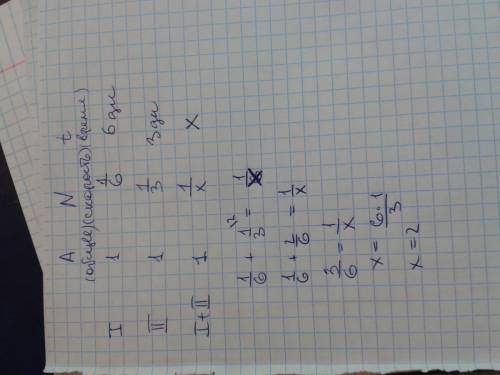 A N t
(общее) (скорость) (время)
I 1 1/6 6 дн
II 1 1/3 3 дн
I+II 1 1/x x
1/6 + 1/3 \2 = 1/x
1/6 + 2/6 = 1/x
3/6 = 1/x
x = 6·1/3
x = 2